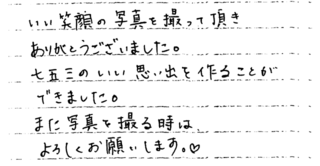 いい笑顔の写真を撮って頂き
ありがとうございました。
七五三のいい思い出を作ることが
できました。
また写真を撮る時は、
よろしくお願いします。♡